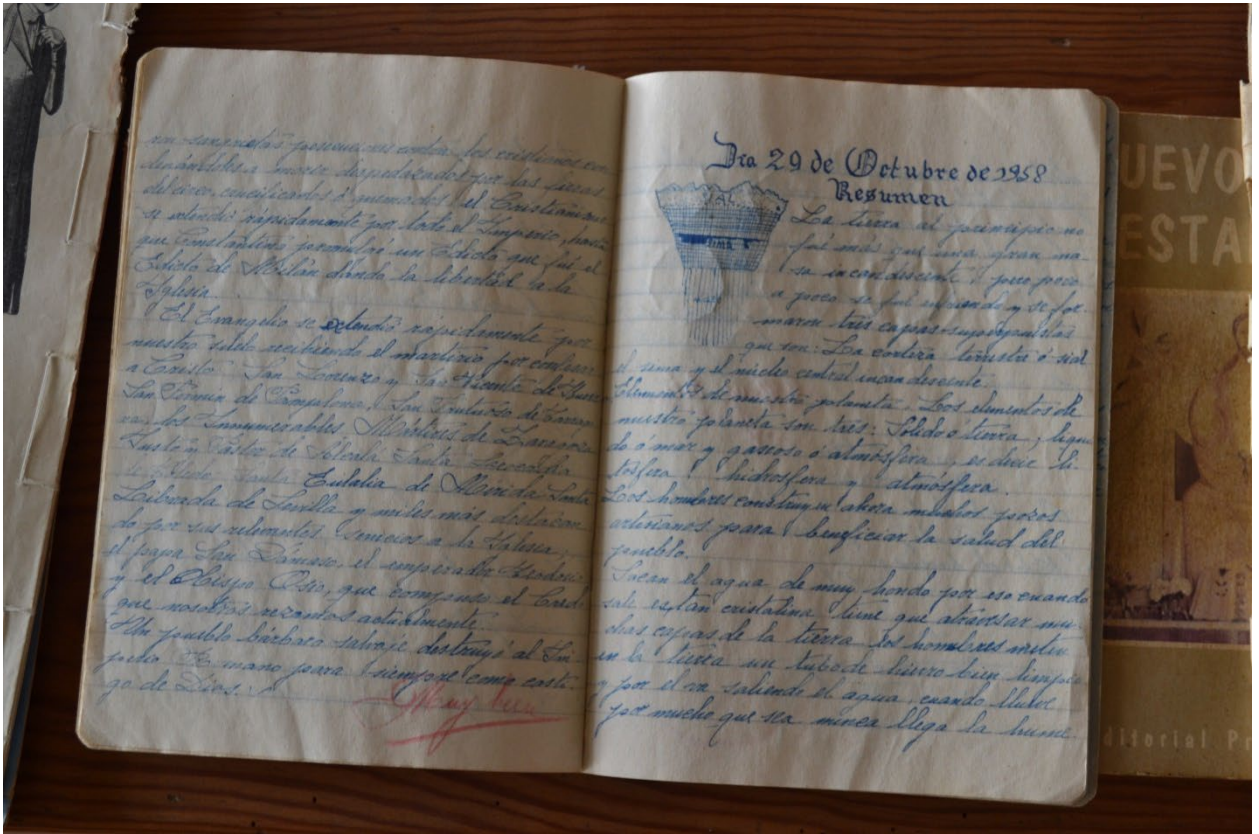 ron sangrietas persecuciones contra los cristianos con
denándoles a morir despedazados por las fieras
del circo, crucificados ó quemados el Cristianismo
se extendió rápidamente por todo el Imperio, hasta
que Constantino promulgó un Edicto que fué el
Edicto de Milán dando la libertad a la
Iglesia.
El Evangelio se extendió rápidamente por
nuestro suelo recibiendo el martirio por confesar
a Cristo San Lorenzo y San Vicente de
San Fermin de Pamplona, San Frutuoso de Tarrago
na, los Innumerables Mártires de Zaragoza
Justo y Pastor de Alcalá Santa Leocadia
de Toledo, Santa Eulalia de Mérida Santa
Librada de Sevilla y miles más destacan
do por sus relevantes servicios a la Iglesia,
el papa San Dámaso, el emperador Teodosio
y el Obispo Osio, que compuso el Credo
que nosotros rezamos actualmente.
Un pueblo bárbaro salvaje destruyó al Im
perio Romano para siempre como casti
go de Dios.
Muy bien
Dia 29 de Octubre de 1958
Resumen
La tierra al principio no
fué más que una gran ma
sa incandescente pero poco
a poco se fué enfriando y se for
maron tres capas superpuestas
que son: La corteza terrestre ó sial
el sima y el núcleo central incandescente.
SIAL
SIMA
Elementos de nuestro planeta. Los elementos de
nuestro planeta son tres: Sólido ó tierra, líqui
do ó mar y gaseoso ó atmósfera, es decir li
tosfera, hidrosfera y atmósfera.
Los hombres construyen ahora muchos pozos
artesianos para beneficiar la salud del
pueblo.
Sacan el agua de muy hondo por eso cuando
sale es tan cristalina tiene que atravesar mu
chas capas de la tierra los hombres meten
en la tierra un tubo de hierro bien limpio
y por el va saliendo el agua, cuando llueve
por mucho que sea nunca llega la hume
UEVO
ESTA
ditorial Pr